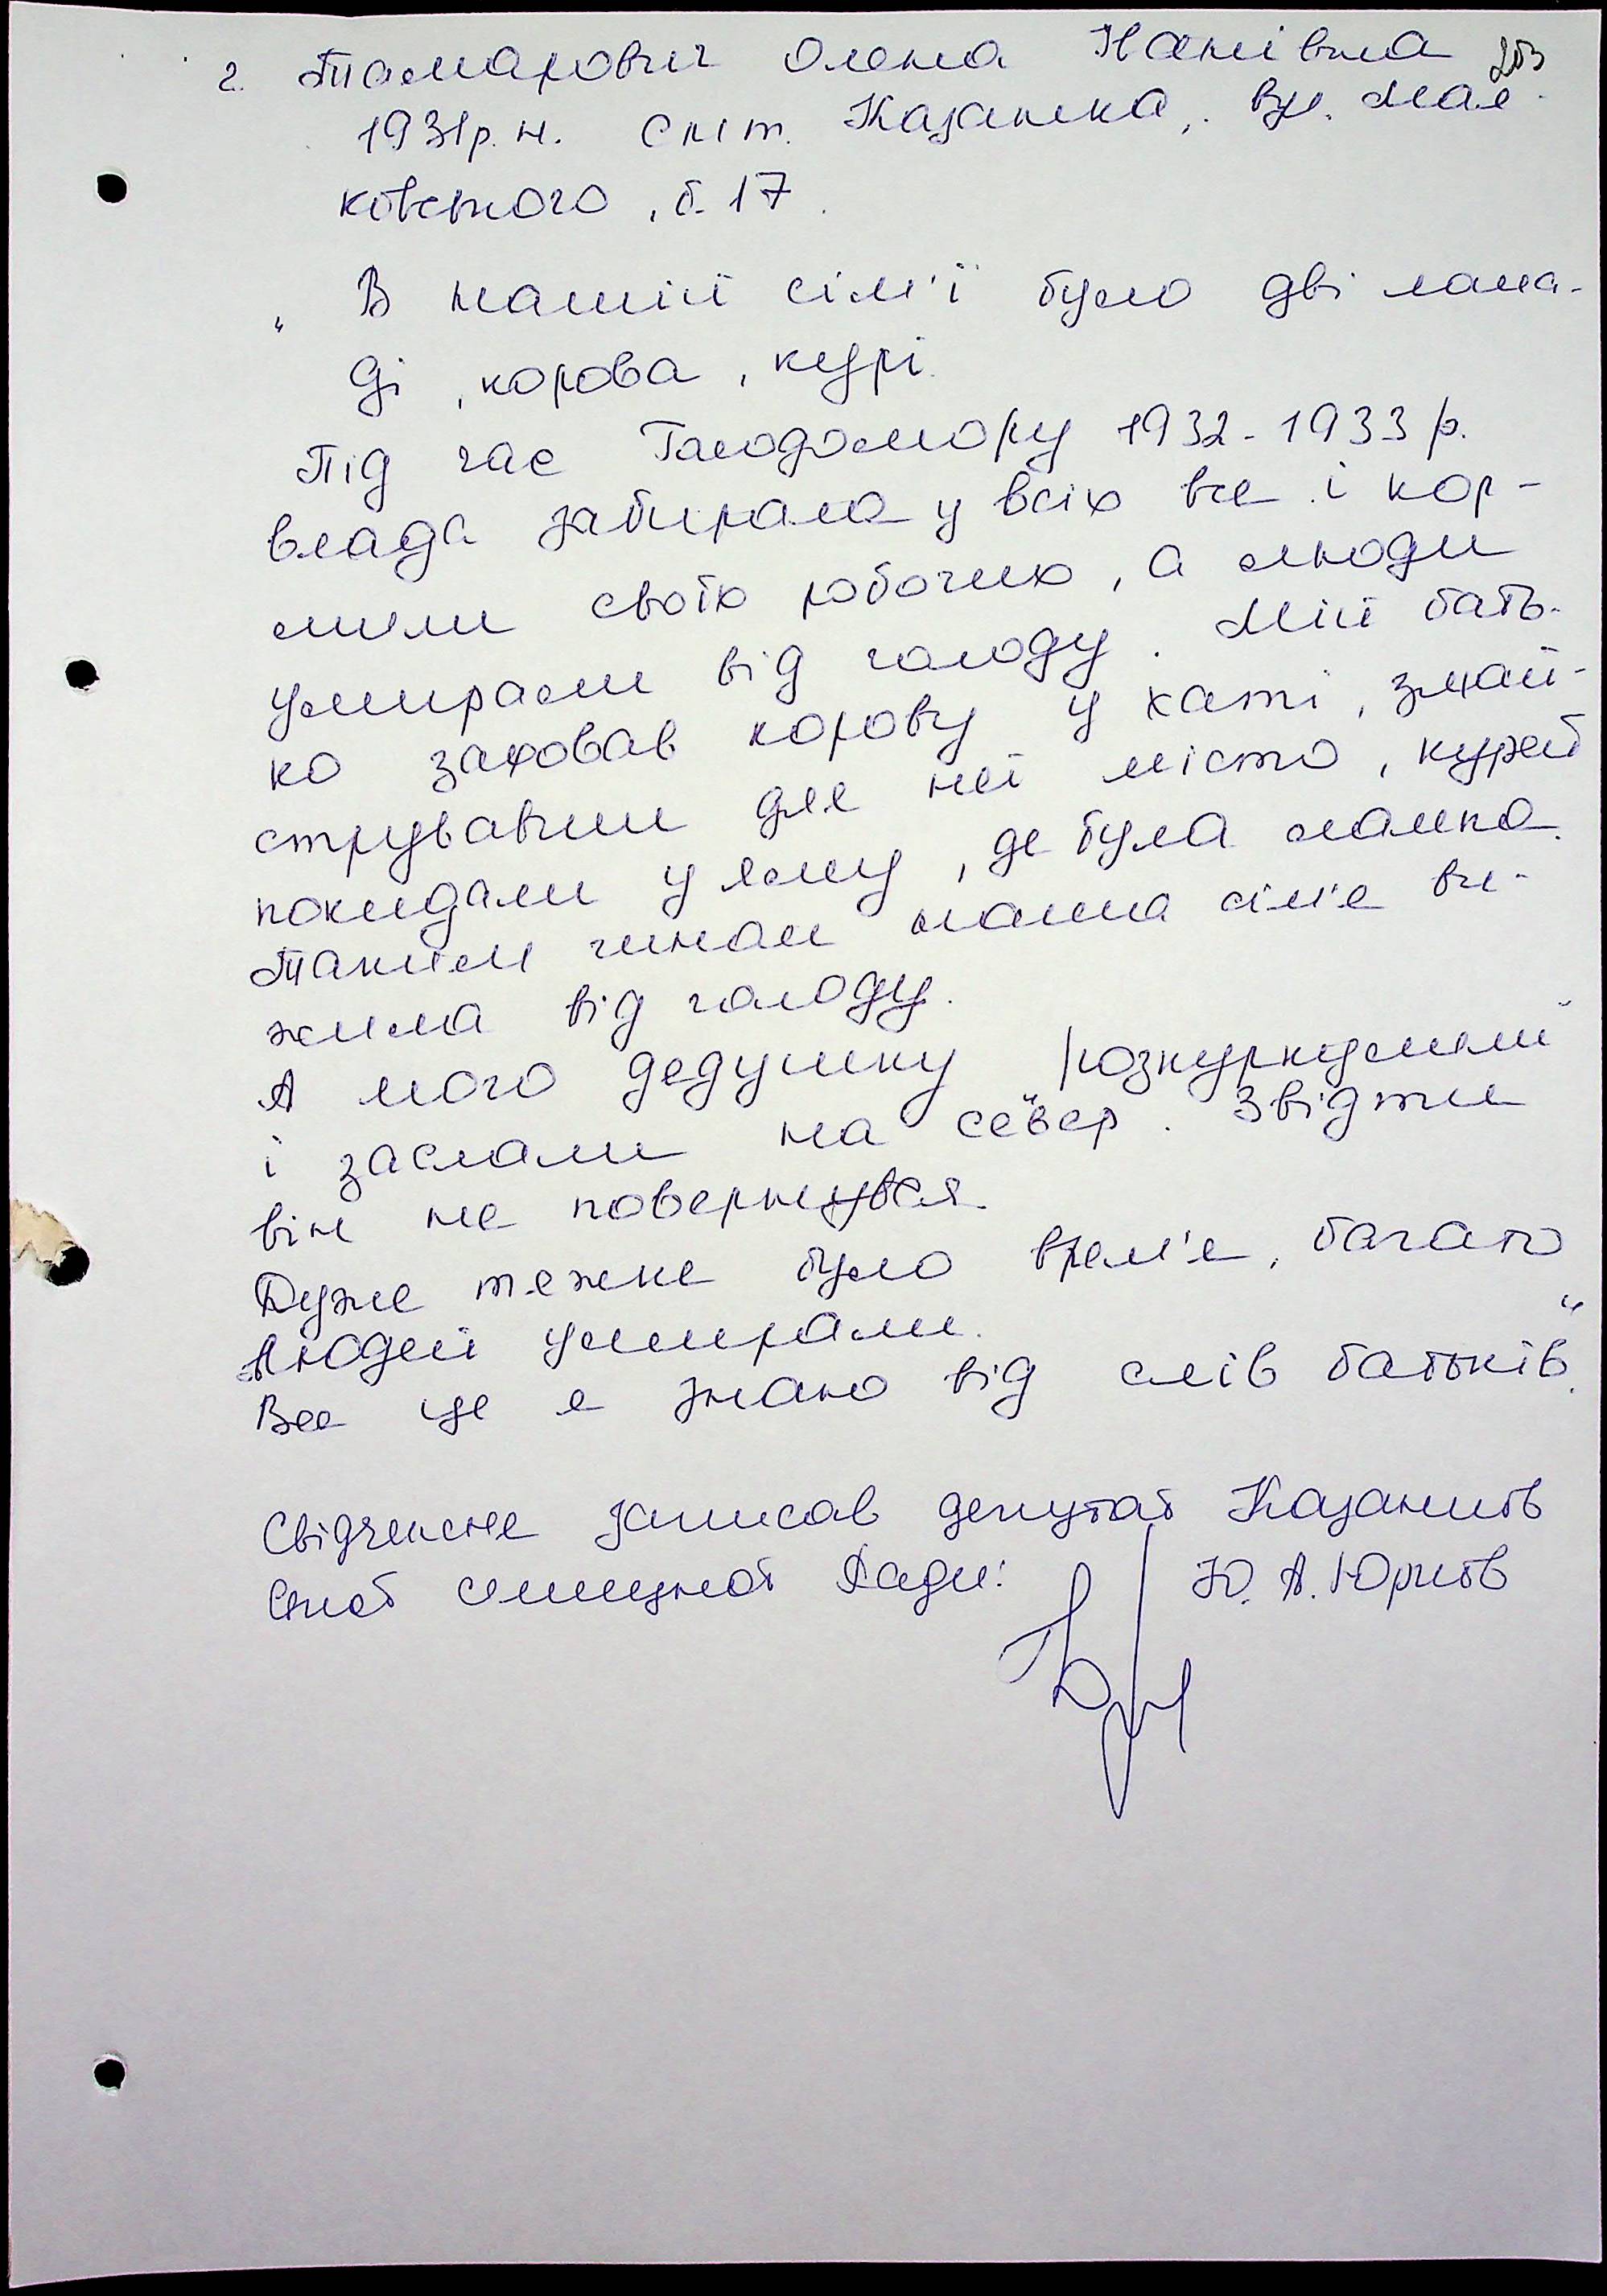 2. Томарович Олена Наумівна 203
1931р.н. смт. Казанка, вул. Мая-
ковського, б. 17.
„ В нашій сім'ї було дві лоша-
ді, корова, курі.
Під час Голодомору 1932-1933 р.
влада забирала у всіх все і кор-
мили своїх робочих, а люди
умирали від голоду. Мій бать-
ко заховав корову у хаті, змай-
струвавши для неї місто, курей
покидали у яму, де була
Таким чином наша сім'я ви-
жила від голоду.
А мого дедушку розкуркулили
і заслали на „север". Звідти
він не повернувся.
Дуже тяжке було врем'я, багато
людей умирали.
Все це я знаю від слів батьків."
Свідчення записав депутат Казанків
ської селищної Ради: Ю. А. Юрков